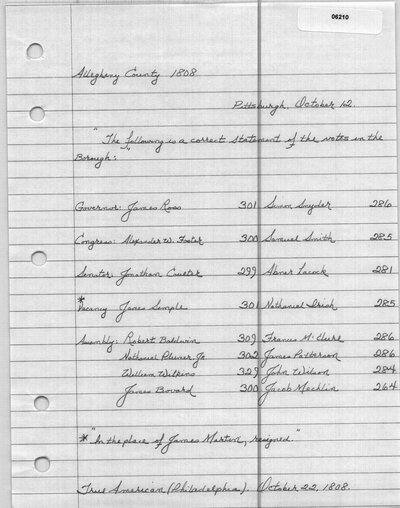 06210
Allegheny County 1808
Pittsburgh, October 12.
"The following is a correct statement of the votes in the
Borough:"
Governor: James Ross 301 Simon Snyder 286
Congress: Alexander W. Foster 300 Samuel Smith 285
Senator: Jonathan Coulter 299 Abner Lacock 281
*Vacancy James Semple 301 Nathaniel Irish 285
Assembly: Robert Baldwin 309 Francis McClure 286
Nathaniel Plumer, Jr. 302 James Patterson 286
William Wilkins 329 John Wilson 284
James Bovard 300 Jacob Mechlin 264
* "In the place of James Martin, resigned."
True American (Philadelphia). October 22, 1808.